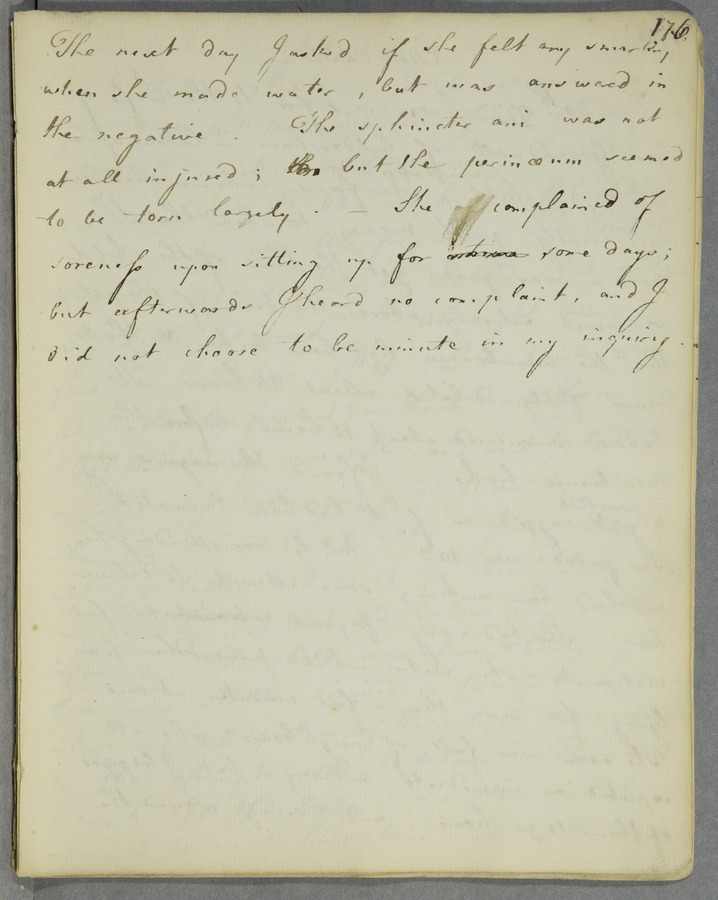 176.
The next day I asked if she felt any smarting
when she made water, but was answered in
the negative. The sphincter ani was not
at all injured; but the perinæum seemed
to be torn largely. — She complained of
soreness upon sitting up for some days;
but afterwards I heard no complaint, and I
did not choose to be minute in my inquiry.